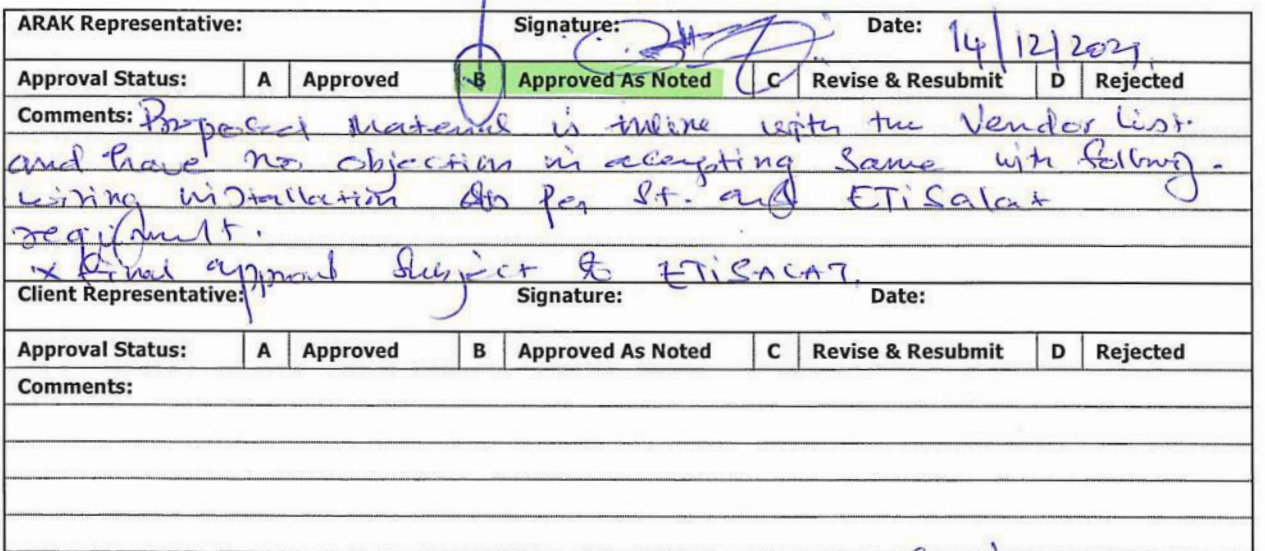 ARAK Representative: Signature: Date: 14/12/2021.
Approval Status: A Approved B Approved As Noted C Revise & Resubmit D Rejected
Comments: Proposed Material is inline with the Vendor List.
and have no objection in accepting Same with following.
wiring installation As Per St. and ETiSalat
requirmult.
x Final approval Subject to ETiSALAT.
Client Representative: Signature: Date:
Approval Status: A Approved B Approved As Noted C Revise & Resubmit D Rejected
Comments: